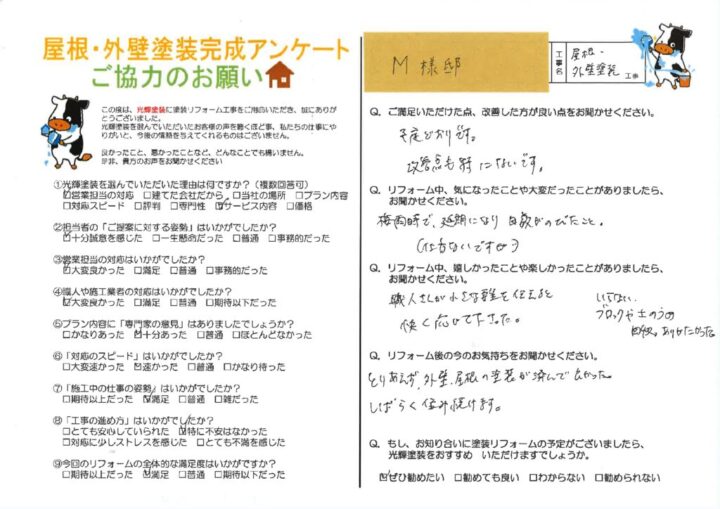 屋根・外壁塗装完成アンケート
ご協力のお願い
この度は、光輝塗装に塗装リフォーム工事をご用命いただき、誠にありがとうございました。
光輝塗装を選んでいただいたお客様の声を聴くほど事、私たちの仕事にやりがいと、今後の情熱を与えてくれるものはございません。
良かったこと、悪かったことなど、どんなことでも構いません。
是非、貴方のお声をお聞かせください
①光輝塗装を選んでいただいた理由は何ですか?(複数回答可)
☑営業担当の対応 □建てた会社だから □当社の場所 □プラン内容
□対応スピード □評判 □専門性 ☑サービス内容 □価格
②担当者の「ご提案に対する姿勢」はいかがでしたか?
☑十分誠意を感じた □一生懸命だった □普通 □事務的だった
③営業担当の対応はいかがでしたか?
☑大変良かった □満足 □普通 □事務的だった
④職人や施工業者の対応はいかがでしたか?
☑大変良かった □満足 □普通 □期待以下だった
⑤プラン内容に「専門家の意見」はありましたでしょうか?
□かなりあった ☑十分あった □普通 □ほとんどなかった
⑥「対応のスピード」はいかがでしたか?
□大変速かった ☑速かった □普通 □かなり待った
⑦「施工中の仕事の姿勢」はいかがでしたか?
□期待以上だった ☑満足 □普通 □雑だった
⑧「工事の進め方」はいかがでしたか?
□とても安心していられた ☑特に不安はなかった
□対応に少しストレスを感じた □とても不満を感じた
⑨今回のリフォームの全体的な満足度はいかがですか?
□期待以上だった ☑満足 □普通 □期待以下だった
M 様邸
工事名
屋根・
外壁塗装 工事
Q. ご満足いただけた点、改善した方が良い点をお聞かせください。
予定どおりです。
改善点も特にないです。
Q. リフォーム中、気になったことや大変だったことがありましたら、
お聞かせください。
梅雨時で、延期になり 日数がのびたこと。
(仕方ないですが)
Q. リフォーム中、嬉しかったことや楽しかったことがありましたら、
お聞かせください。
職人さんが小さな要望を伝えると
快く応じて下さった。
いらない
ブロックや土のうの
回収。ありがたかった
Q. リフォーム後の今のお気持ちをお聞かせください。
とりあえず、外壁、屋根の塗装が済んで良かった
しばらく住み続けます。
Q. もし、お知り合いに塗装リフォームの予定がございましたら、
光輝塗装をおすすめ いただけますでしょうか。
☑ぜひ勧めたい □勧めても良い □わからない □勧められない